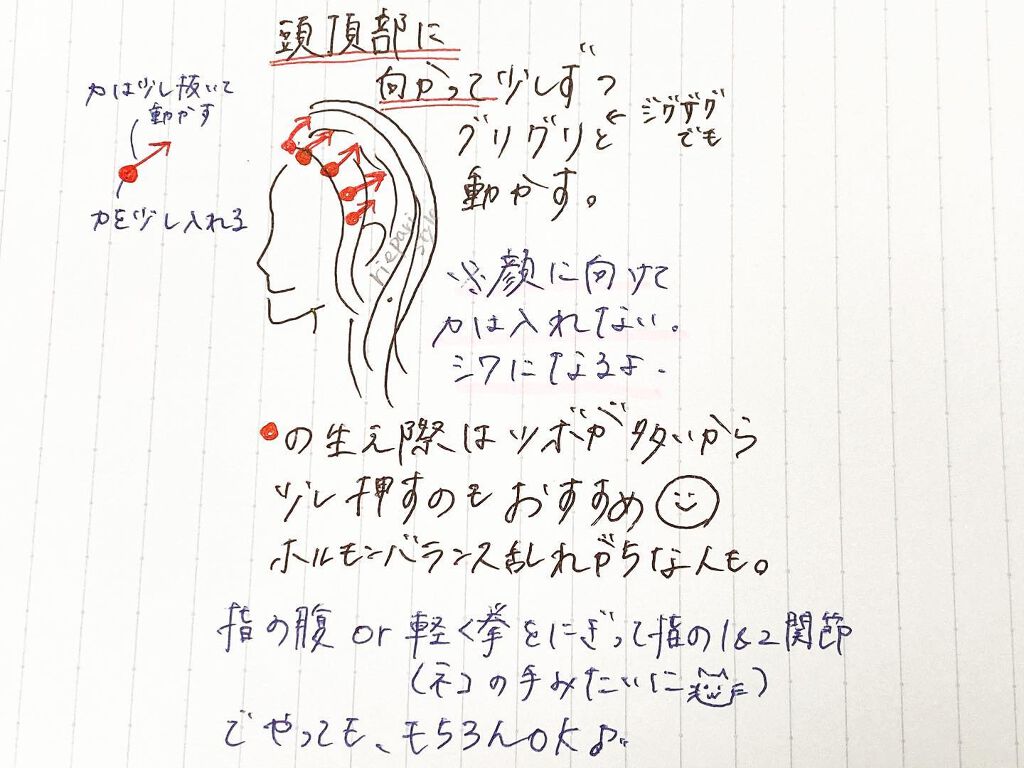 頭頂部に
向かって少しずつ
グリグリと ← ジグザグでも
動かす。
力は少し抜いて
動かす
力を少し入れる
riepari style
※顔に向けて
力は入れない。
シワになるよ。
●の生え際はツボが多いから
少し押すのもおすすめ
ホルモンバランス乱れがちな人も。
指の腹 or 軽く拳をにぎって指の1&2関節
(ネコの手みたいに)
でやっても、もちろんOK♪。